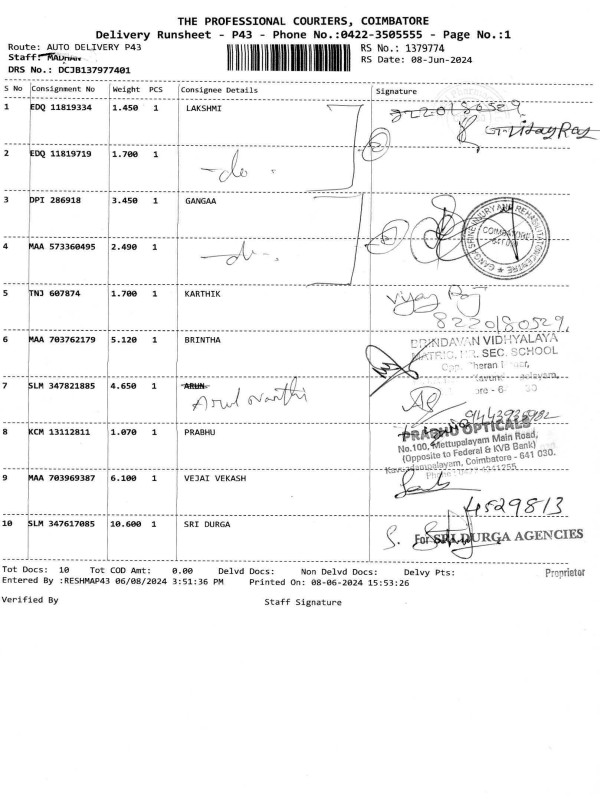 THE PROFESSIONAL COURIERS, COIMBATORE
Delivery Runsheet - P43 - Phone No.:0422-3505555 - Page No.:1
Route: AUTO DELIVERY P43 RS No.: 1379774
Staff: MADHAV RS Date: 08-Jun-2024
DRS No.: DCJB137977401
S No Consignment No Weight PCS Consignee Details Signature
1 EDQ 11819334 1.450 1 LAKSHMI 8220180529
G. Vijay Raj
2 EDQ 11819719 1.700 1 -do- 2
3 DPI 286918 3.450 1 GANGAA
GANGA SPINE INJURY AND REHABILITATION CENTRE
COIMBATORE
4 MAA 573360495 2.490 1 -do- 2
5 TNJ 607874 1.700 1 KARTHIK Vijay Raj
8220180529,
6 MAA 703762179 5.120 1 BRINTHA BRINDAVAN VIDHYALAYA
MATRIC. HR. SEC. SCHOOL
Opp.
7 SLM 347821885 4.650 1 ARUN
Arul
8 KCM 13112811 1.070 1 PRABHU PRABHU OPTICALS
No.100, Mettupalayam Main Road,
(Opposite to Federal & KVB Bank)
Kavundampalayam, Coimbatore - 641 030.
9 MAA 703969387 6.100 1 VEJAI VEKASH
4529813
10 SLM 347617085 10.600 1 SRI DURGA For SRI DURGA AGENCIES
Tot Docs: 10 Tot COD Amt: 0.00 Delvd Docs: Non Delvd Docs: Delvy Pts: Proprietor
Entered By :RESHMAP43 06/08/2024 3:51:36 PM Printed On: 08-06-2024 15:53:26
Verified By Staff Signature